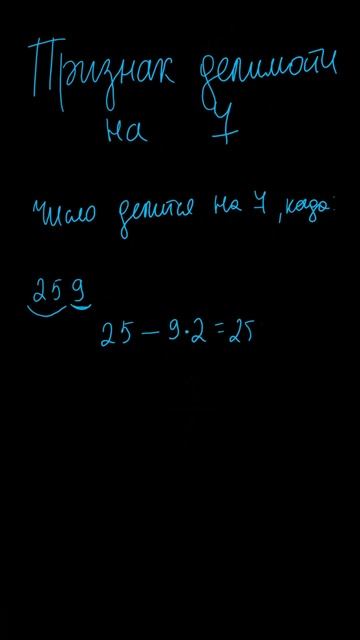 Признак делимости
на 7
Число делится на 7, когда:
259
25 - 9·2 = 25